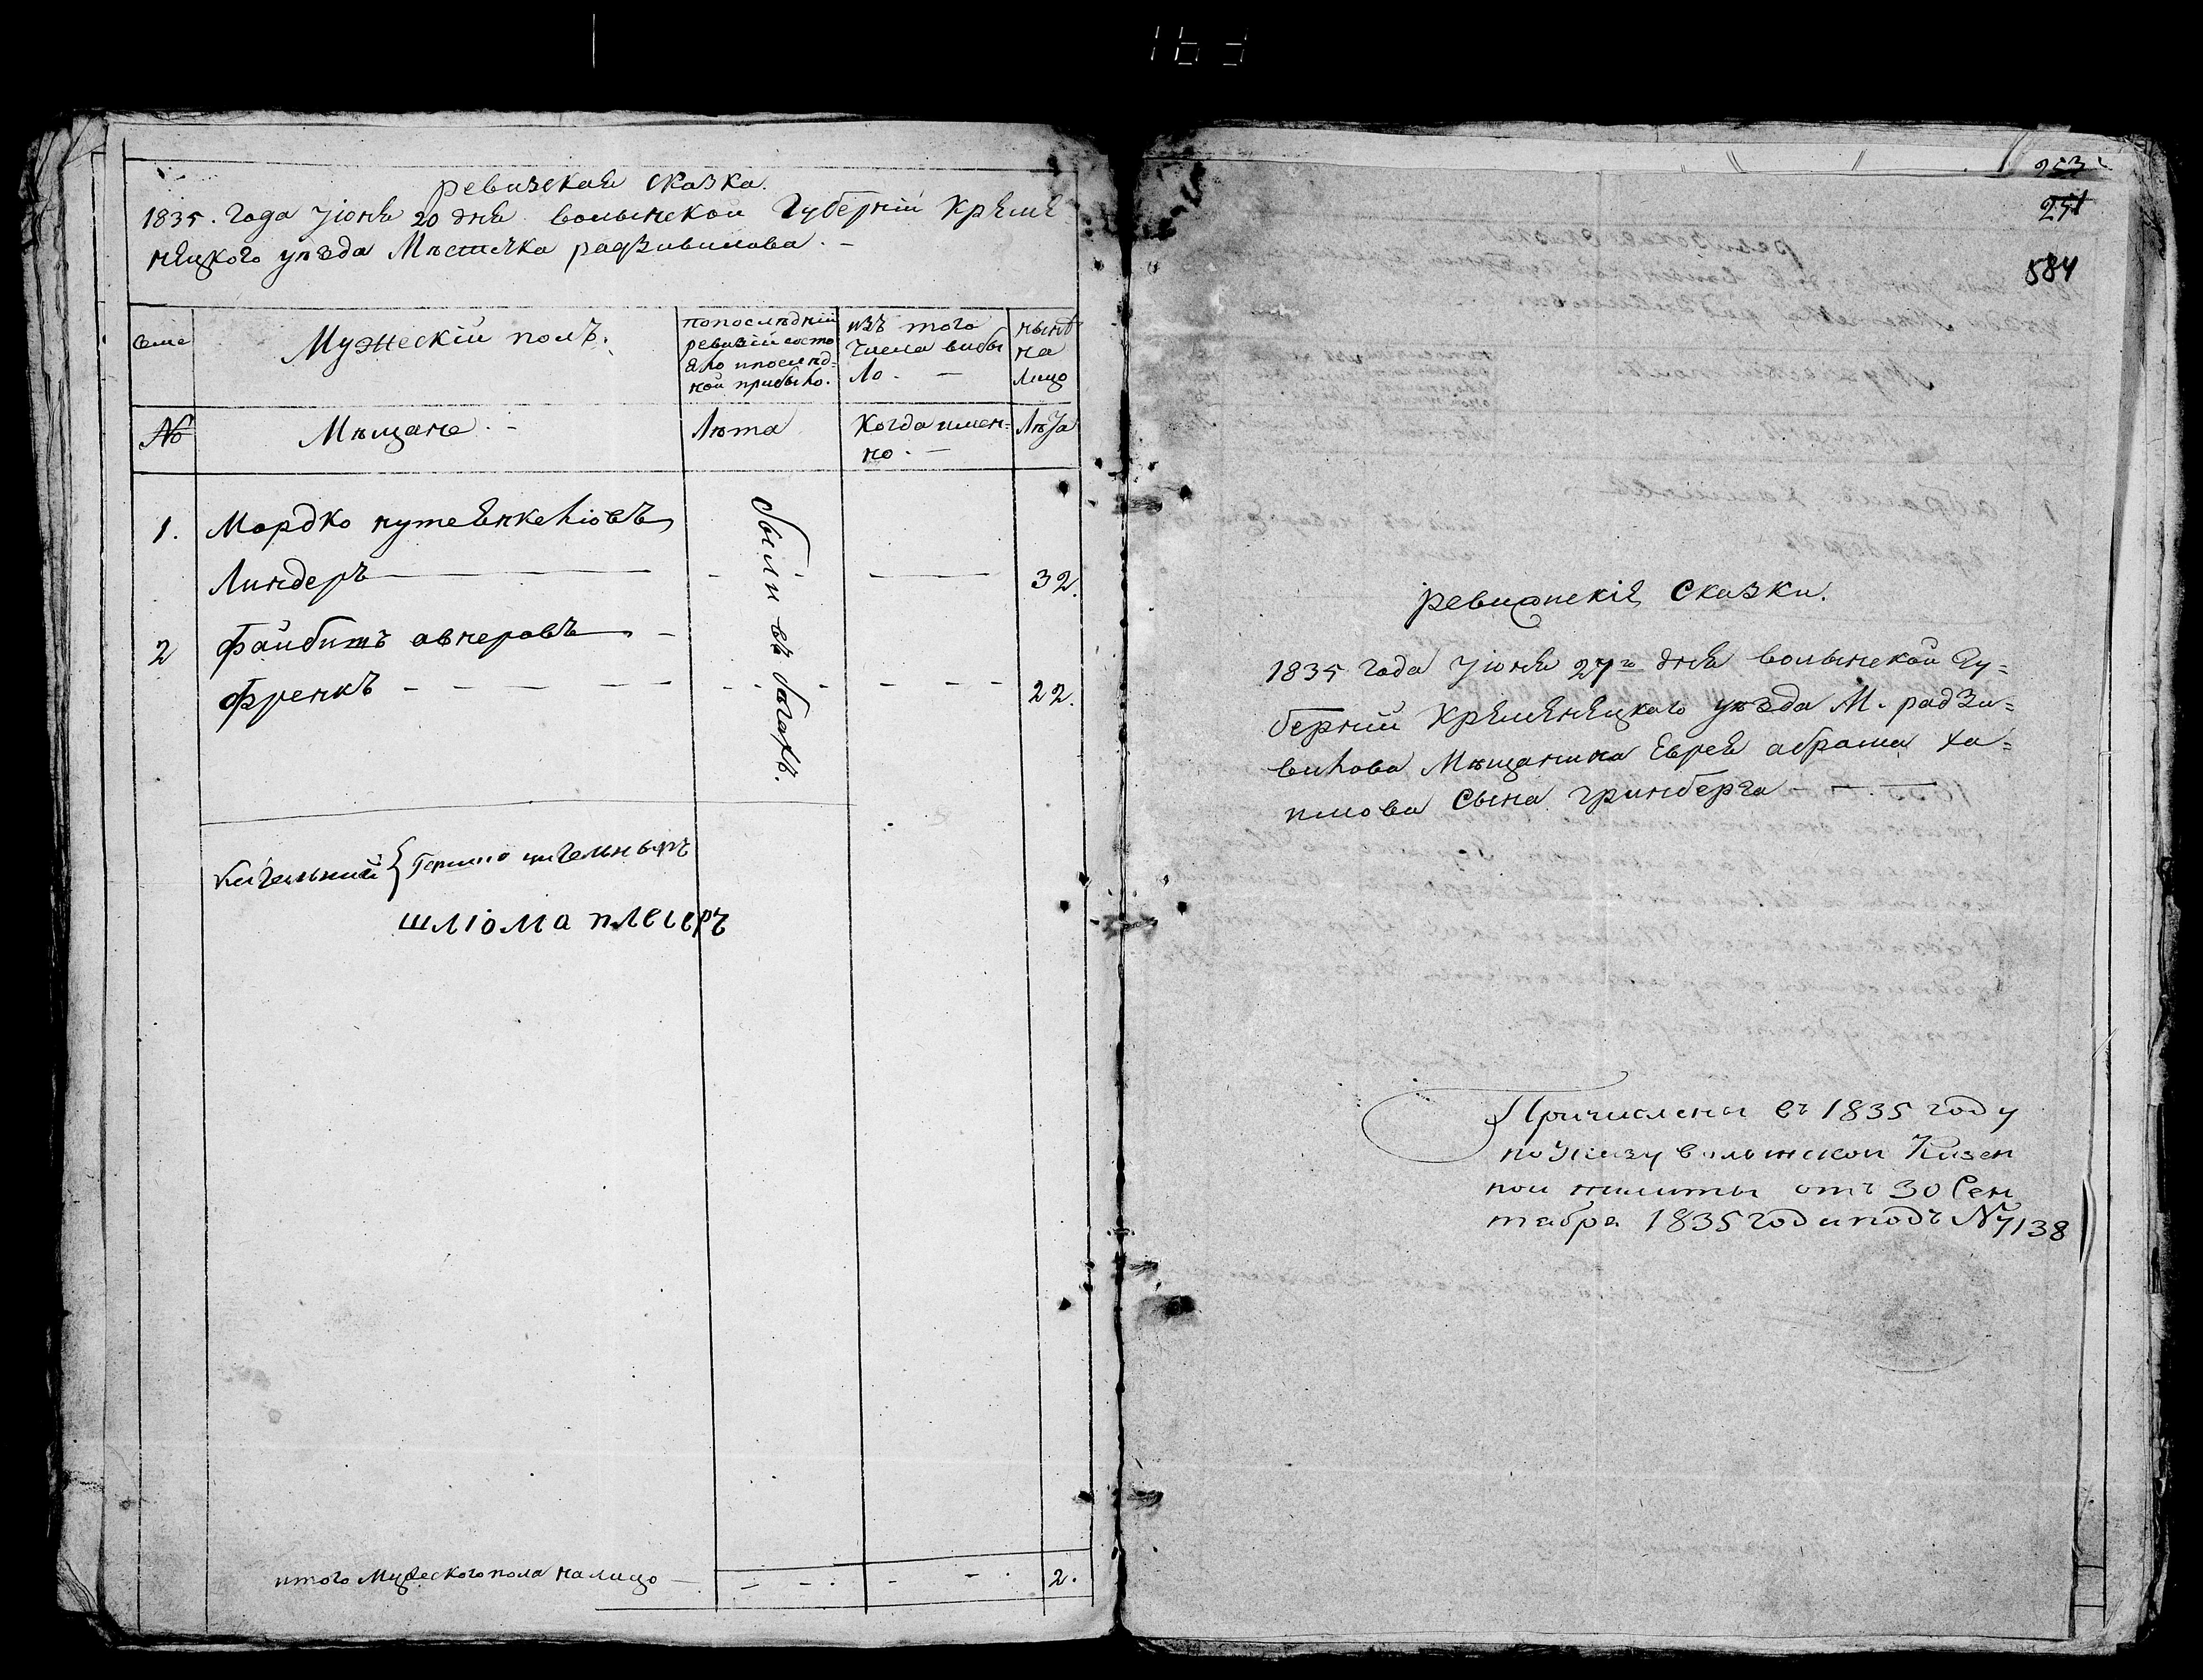 ревизская сказка.
1835. года Іюня 20 дня волынской Губерніи Креме
нецкого уѣзда Мѣстечка радзивилова. –
Мужескій полъ.
попослѣдній
ревизіи состо
яло ипослѣд=
ной прибыло.
изъ того
числа выбы
ло. –
нынѣ
на
лицо
№
Мѣщане. –
Лѣта
Когда имен=
но. –
Лѣта
1. Мордко
Линдеръ — 32.
2 Файбишъ авнеровъ –
Френкъ – – – – 22.
были въ бѣгахъ.
Кагальный {
шлюма плесеръ
итого Мужеского пола налицо — 2.
253
251
584
ревизскія Сказки.
1835 года Іюня 27го дня волынской Гу=
берніи Кременецкого уѣзда М. радзи=
вилова Мѣщанина Еврея абрама ха=
имова Сына гринберга – – . —
Причислены въ 1835 году
по Указу волынской Казен
ной палаты отъ 30 Сен
тября 1835 года подъ № 7138